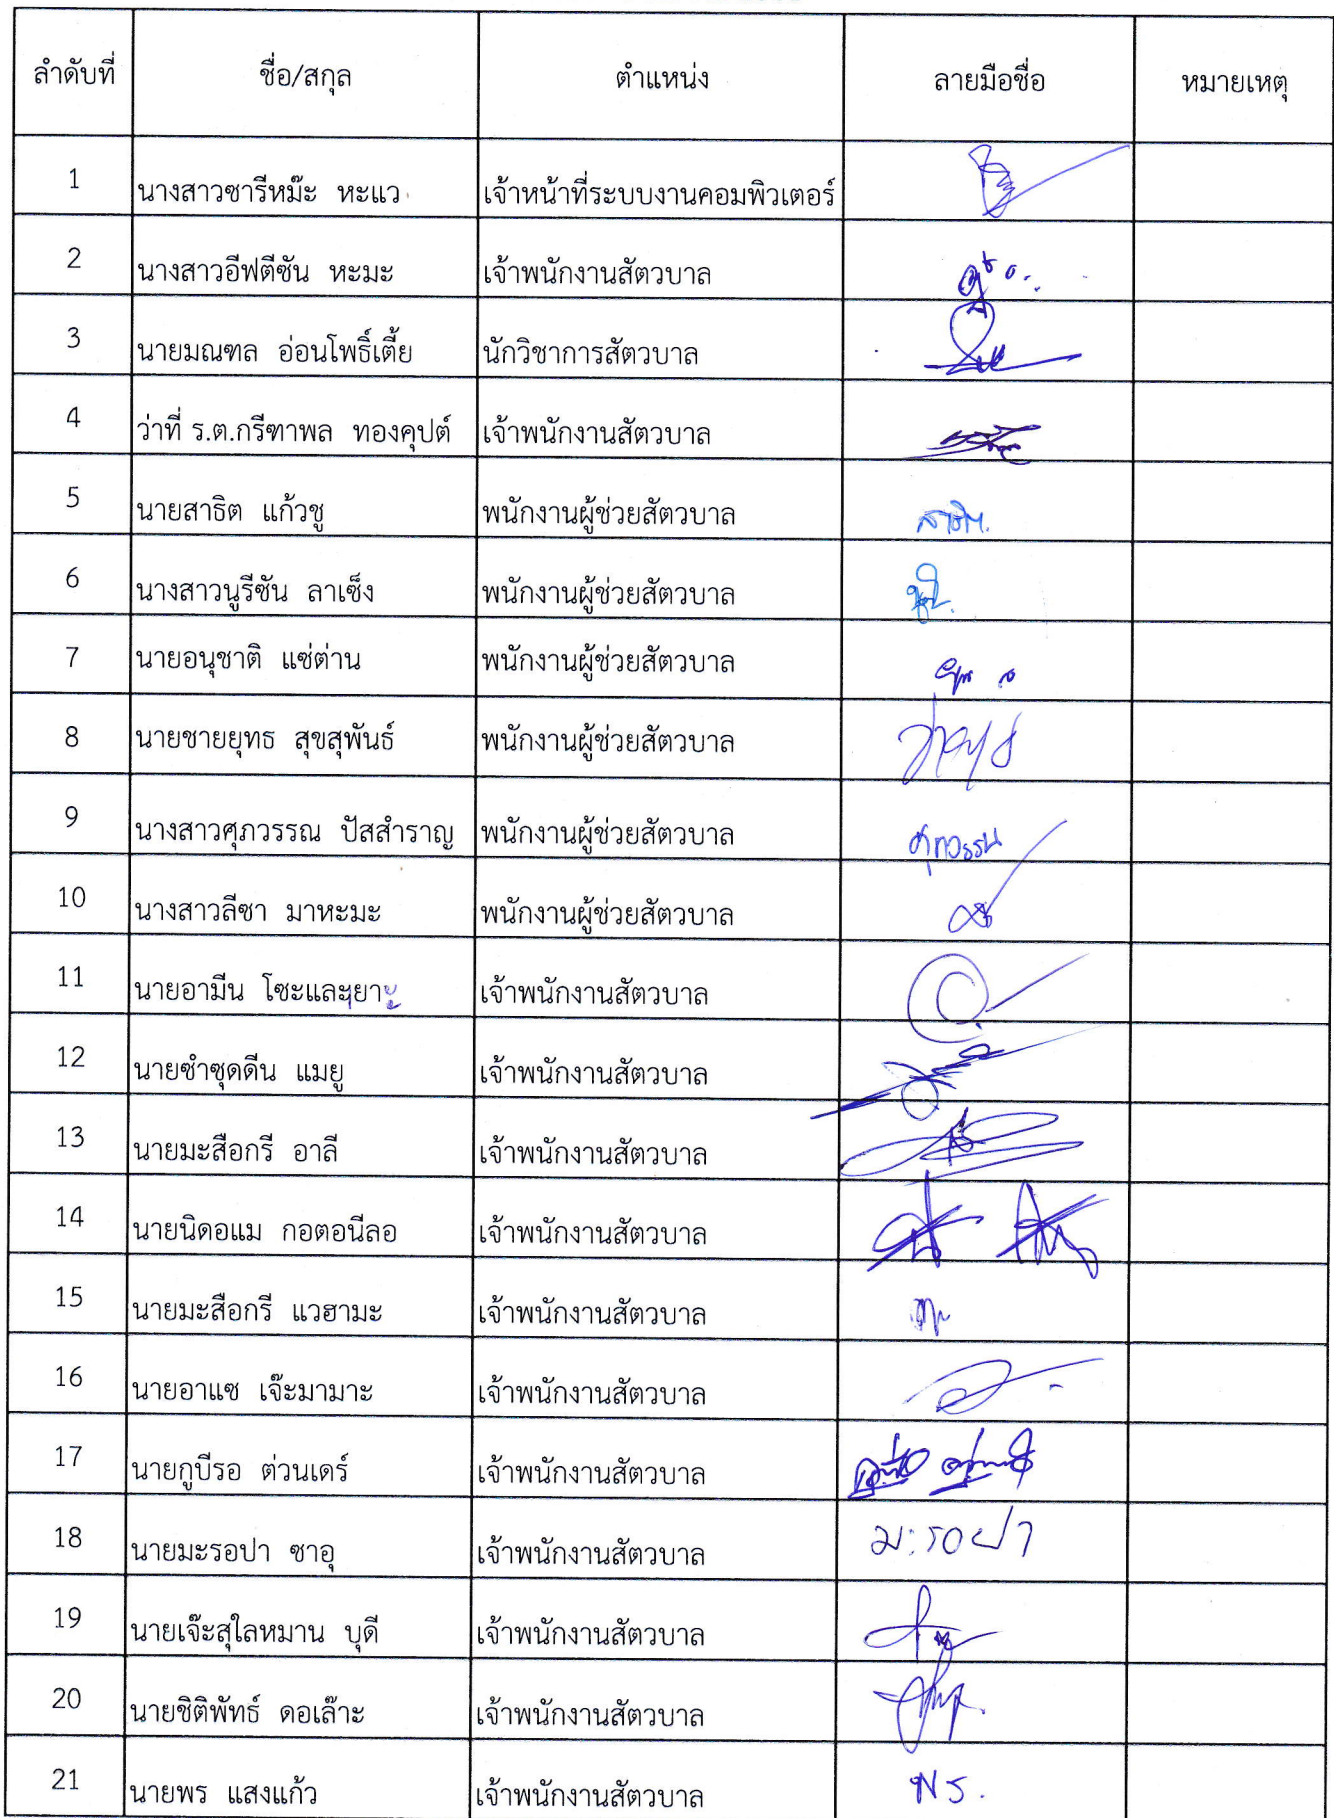 ลำดับที่ ชื่อ/สกุล ตำแหน่ง ลายมือชื่อ หมายเหตุ
1 นางสาวซารีหม๊ะ หะแว เจ้าหน้าที่ระบบงานคอมพิวเตอร์
2 นางสาวอีฟตีซัน หะมะ เจ้าพนักงานสัตวบาล
3 นายมณฑล อ่อนโพธิ์เตี้ย นักวิชาการสัตวบาล
4 ว่าที่ ร.ต.กรีฑาพล ทองคุปต์ เจ้าพนักงานสัตวบาล
5 นายสาธิต แก้วชู พนักงานผู้ช่วยสัตวบาล สาธิต.
6 นางสาวนูรีซัน ลาเซ็ง พนักงานผู้ช่วยสัตวบาล
7 นายอนุชาติ แซ่ต่าน พนักงานผู้ช่วยสัตวบาล
8 นายชายยุทธ สุขสุพันธ์ พนักงานผู้ช่วยสัตวบาล
9 นางสาวศุภวรรณ ปัสสำราญ พนักงานผู้ช่วยสัตวบาล ศุภวรรณ
10 นางสาวลีซา มาหะมะ พนักงานผู้ช่วยสัตวบาล
11 นายอามีน โซะและ เจ้าพนักงานสัตวบาล
12 นายซำซุดดีน แมยู เจ้าพนักงานสัตวบาล
13 นายมะสือกรี อาลี เจ้าพนักงานสัตวบาล
14 นายนิดอแม กอตอนีลอ เจ้าพนักงานสัตวบาล
15 นายมะสือกรี แวฮามะ เจ้าพนักงานสัตวบาล
16 นายอาแซ เจ๊ะมามาะ เจ้าพนักงานสัตวบาล
17 นายกูบีรอ ต่วนเดร์ เจ้าพนักงานสัตวบาล
18 นายมะรอปา ซาอุ เจ้าพนักงานสัตวบาล มะรอปา
19 นายเจ๊ะสุไลหมาน บุดี เจ้าพนักงานสัตวบาล
20 นายชิติพัทธ์ ดอเล๊าะ เจ้าพนักงานสัตวบาล
21 นายพร แสงแก้ว เจ้าพนักงานสัตวบาล พร.